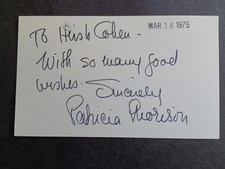 MAR 18 1975
To Hirsh Cohen -
With so many good
wishes - Sincerely
Patricia Morison